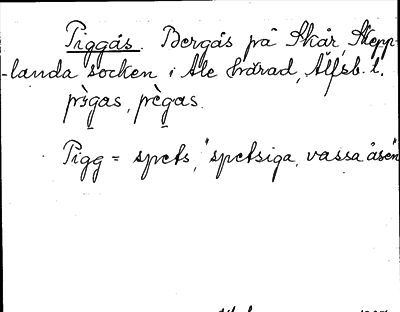 Piggås. Bergås på Skår, Skepp-
-landa socken i Ale härad, Älfsb. l.
pìgas, pègas.
Pigg = spets, "spetsiga, vassa åsen"